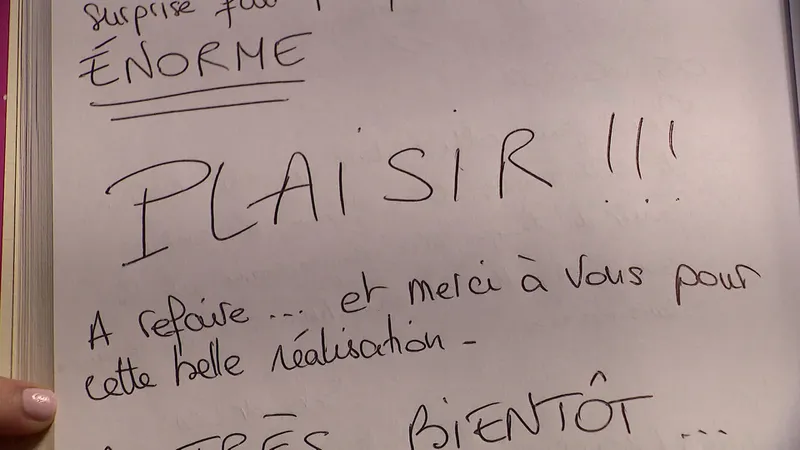 surprise
ÉNORME
PLAiSiR !!!
A refaire ... et merci à vous pour
cette belle réalisation -
TRÈS BiENTÔT ...